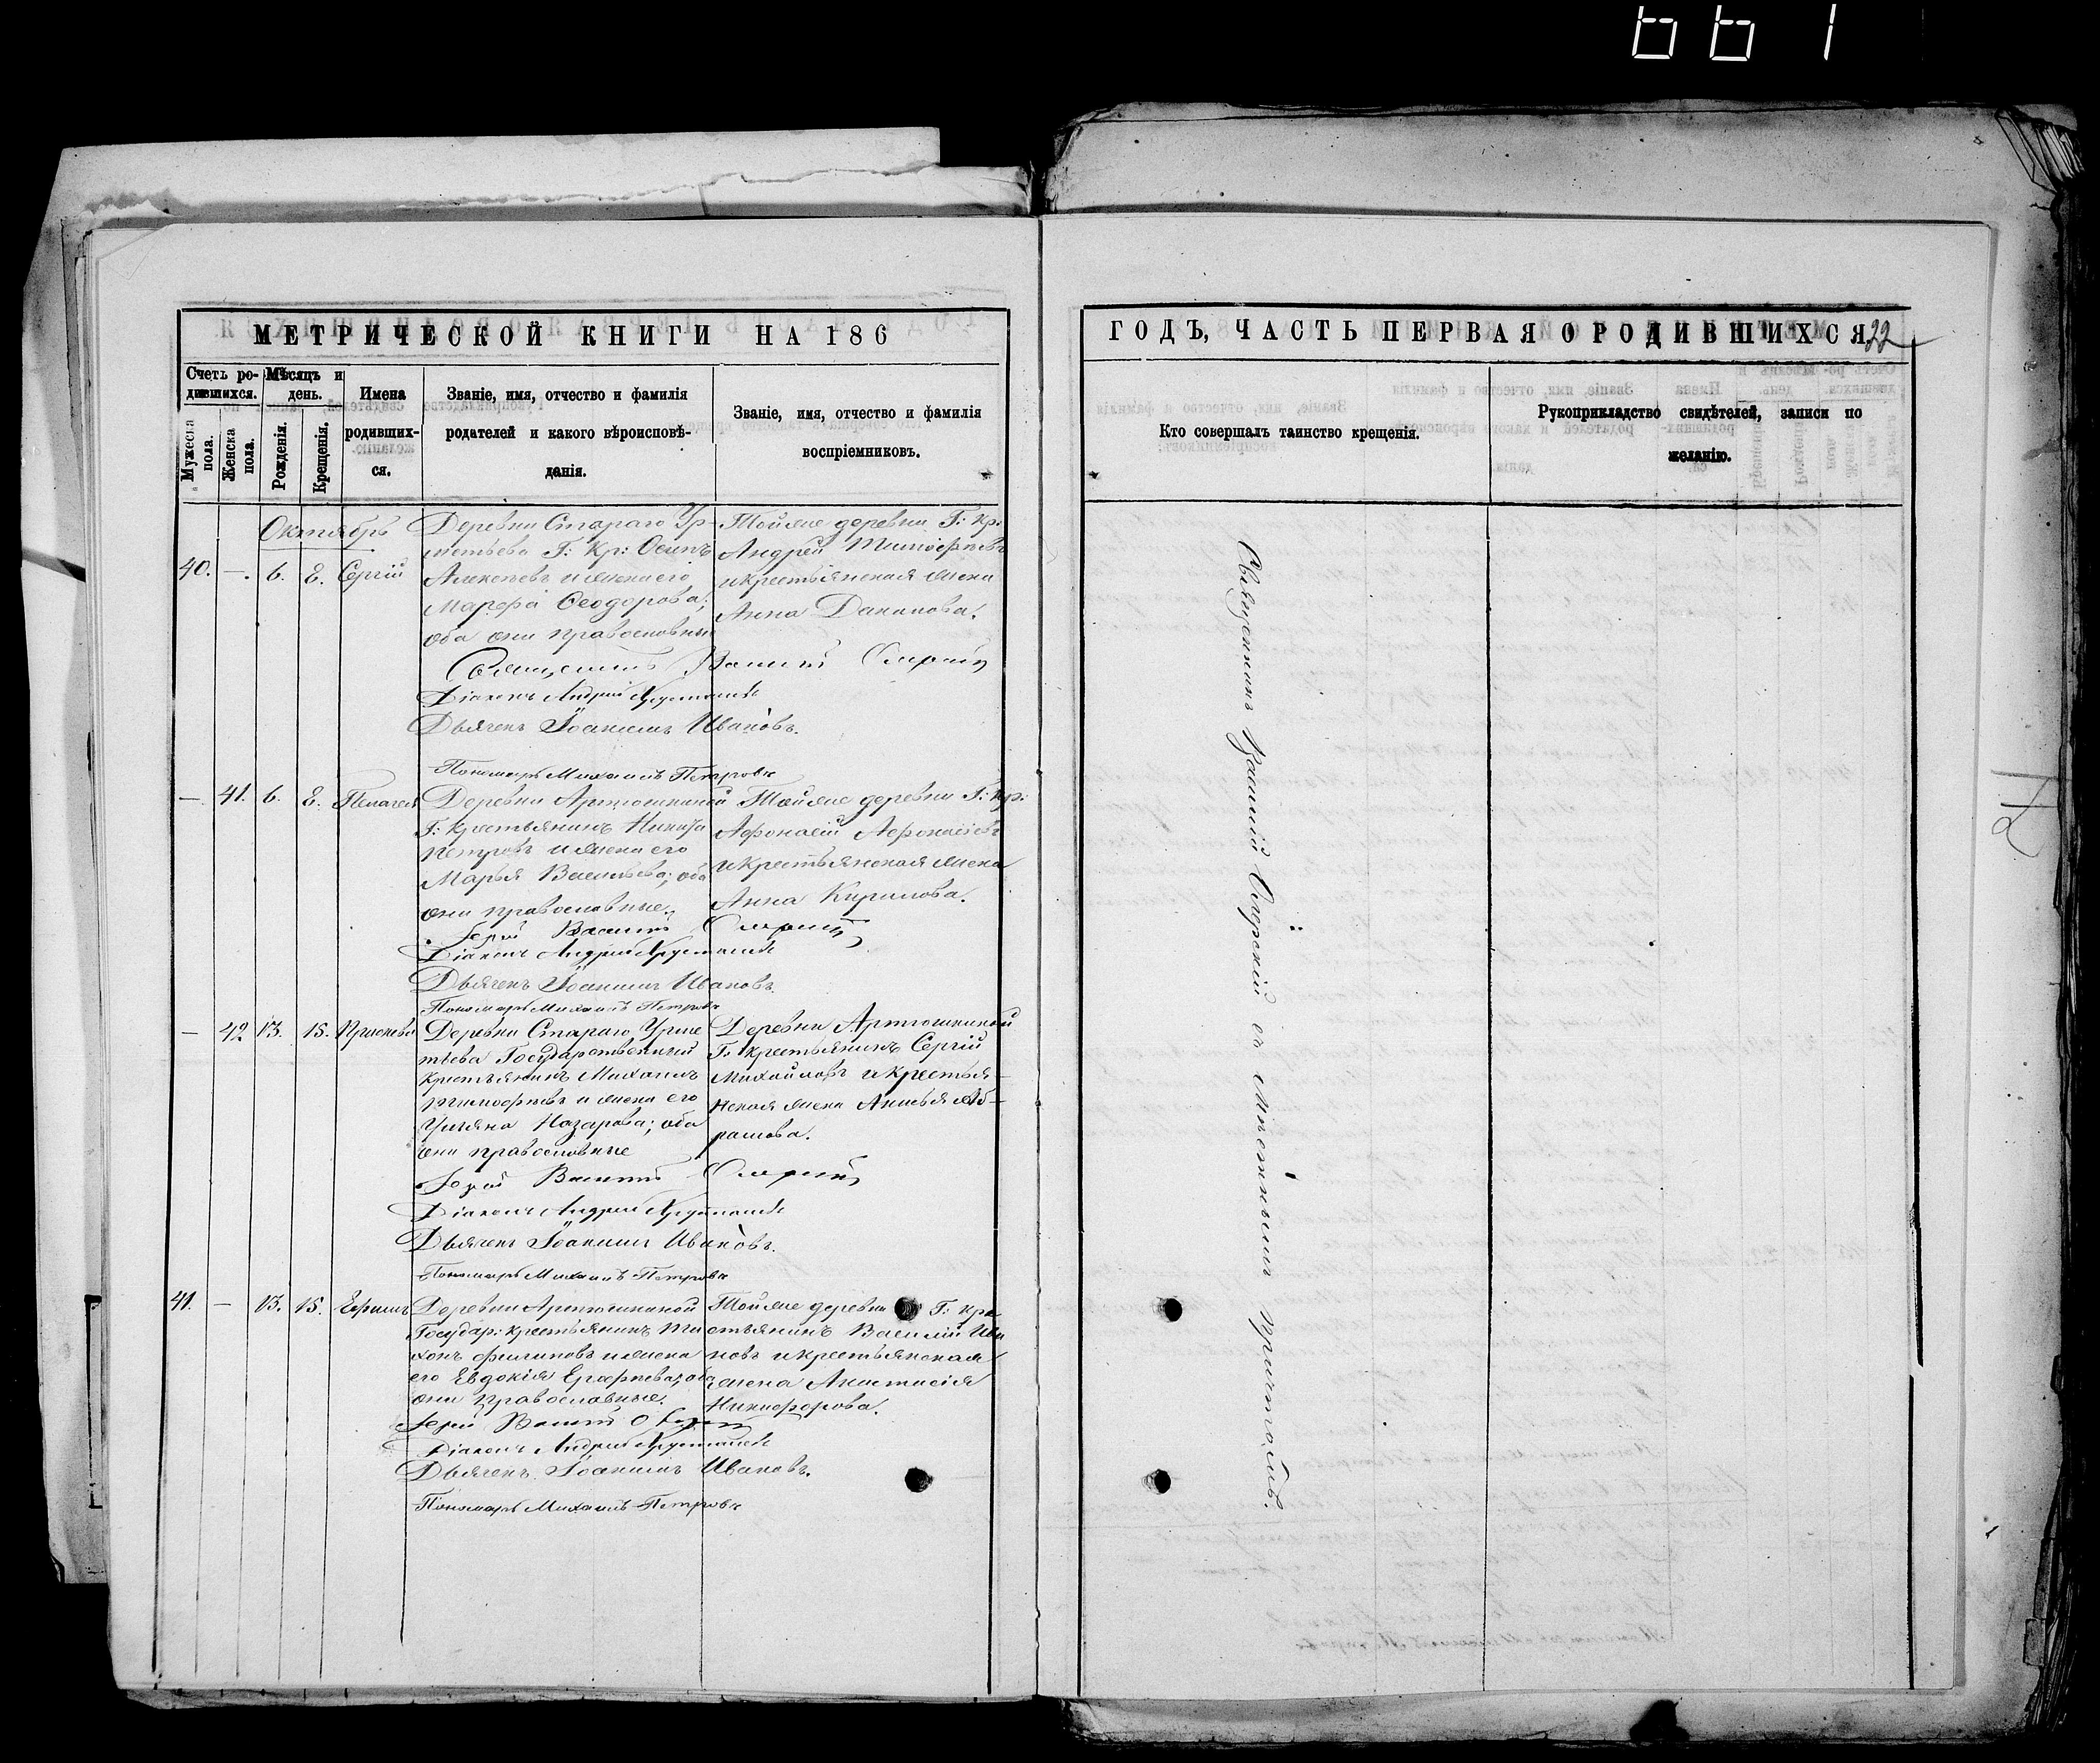 661
МЕТРИЧЕСКОЙ КНИГИ НА 186
Счетъ ро-
дившихся.
Мѣсяцъ и
день.
Имена
родивших-
ся.
Званіе, имя, отчество и фамилія
родителей и какого вѣроисповѣ-
данія.
Званіе, имя, отчество и фамилія
воспріемниковъ.
Мужеска пола.
Женска пола.
Рожденія.
Крещенія.
Октябрь
40. —. 6. 8. Сергій
Деревни Стараго Ур-
метьева Г: Кр: Осипъ
Алексѣевъ и жена его
Марѳа Ѳеодорова;
оба они православные
Тойже деревни Г: Кр:
Андрей Тимоѳѣевъ
и крестьянская жена
Анна Данилова.
Священникъ Василій
Діаконъ Андрей
Дьячекъ Іоакимъ Ивановъ.
Пономарь Михаилъ Петровъ
— 41. 6. 8. Пелагея
Деревни Артюшкиной
Г: Крестьянинъ Никита
Петровъ и жена его
Марья Васильева; оба
они православные.
Тойже деревни Г: Кр:
Аѳонасій Аѳонасіевъ
и крестьянская жена
Анна Кирилова.
Іерей Василій
Діаконъ Андрей
Дьячекъ Іоакимъ Ивановъ.
Пономарь Михаилъ Петровъ
— 42 13. 15. Прасковья
Деревни Стараго Урме
тьева Государственный
крестьянинъ Михаилъ
Тимоѳѣевъ и жена его
Ульяна Назарова; оба
они православные
Деревни Артюшкиной
Г: крестьянинъ Сергій
Михайловъ и крестья-
нская жена Анисья Аб-
рамова.
Іерей Василій
Діаконъ Андрей
Дьячекъ Іоакимъ Ивановъ.
Пономарь Михаилъ Петровъ
41. — 13. 15. Ефимъ
Деревни Артюшкиной
Государ: крестьянинъ Ти
хонъ Филиповъ и жена
его Евдокія Ерофѣева, оба
они православные.
Тойже деревни Г: кре
стьянинъ Василій Ива
новъ и крестьянская
жена Анастасія
Никифорова.
Іерей Василій
Діаконъ Андрей
Дьячекъ Іоакимъ Ивановъ.
Пономарь Михаилъ Петровъ
ГОДЪ, ЧАСТЬ ПЕРВАЯ О РОДИВШИХСЯ
22
Кто совершалъ таинство крещенія.
Рукоприкладство свидѣтелей, записи по
желанію.
Священникъ Василій с мѣстнымъ причтомъ.